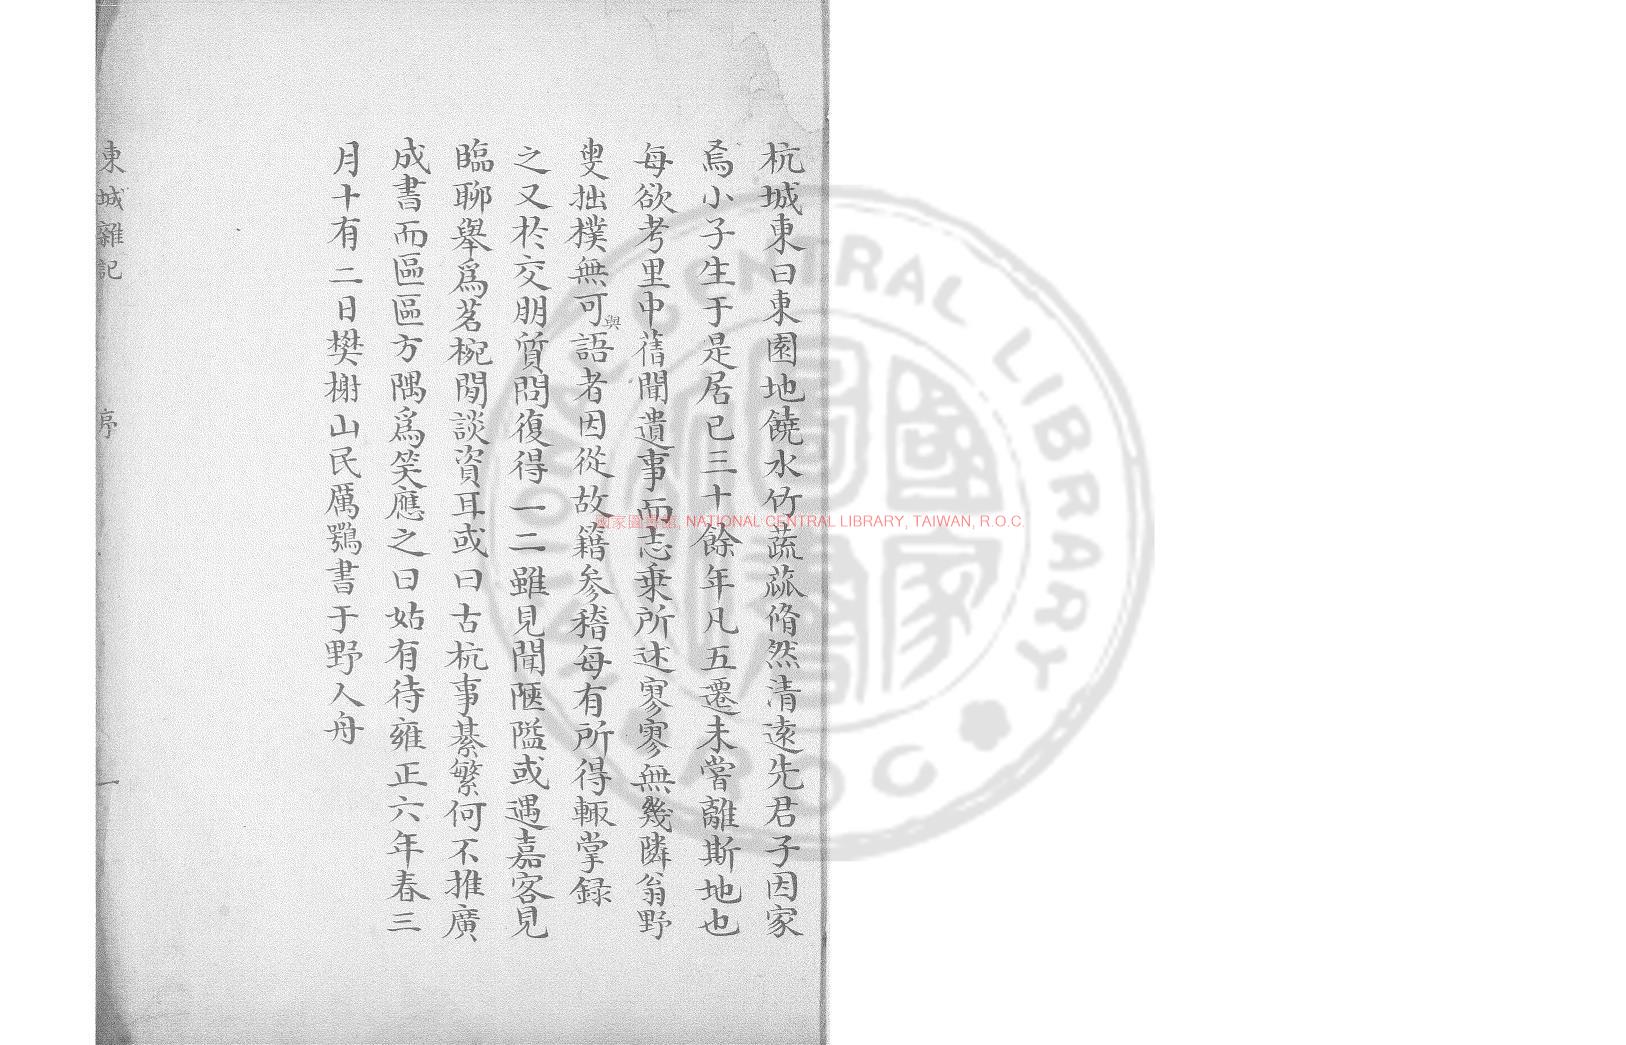 杭城東曰東園地饒水竹蔬蓏翛然清遠先君子因家
焉小子生于是居已三十餘年凡五遷未嘗離斯地也
每欲考里中舊聞遺事而志乘所述寥寥無幾隣翁野
叟拙樸無可與語者因從故籍參稽每有所得輙掌録
之又於交朋質問復得一二雖見聞陋隘或遇嘉客見
臨聊舉爲茗椀閒談資耳或曰古杭事綦繁何不推廣
成書而區區方隅爲笑應之曰姑有待雍正六年春三
月十有二日樊榭山民厲鶚書于野人舟
東城雜記 序 一
國家圖書館, NATIONAL CENTRAL LIBRARY, TAIWAN, R.O.C.
NATIONAL CENTRAL LIBRARY
R.O.C
國家圖書館